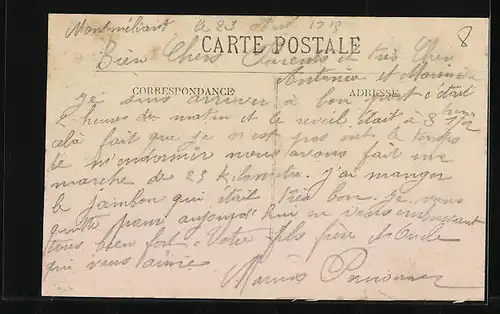 Montmélian le 23 Aout 1918
8
CARTE POSTALE
Bien Chers Parents et très Cher
Antonin et
CORRESPONDANCE
ADRESSE
Je suis arriver à bon port c'était
2 heures du matin et le reveil était à 3 heures 1/2
celà fait que je n'est pas eut le temps
de m'endormir nous avons fait une
marche de 23 Kilometre. j'ai manger
le jambon qui était très bon. je vous
quitte pour aujourd'hui en vous embrassant
tous bien fort. Votre fils frère et Oncle
qui vous aime
Marius